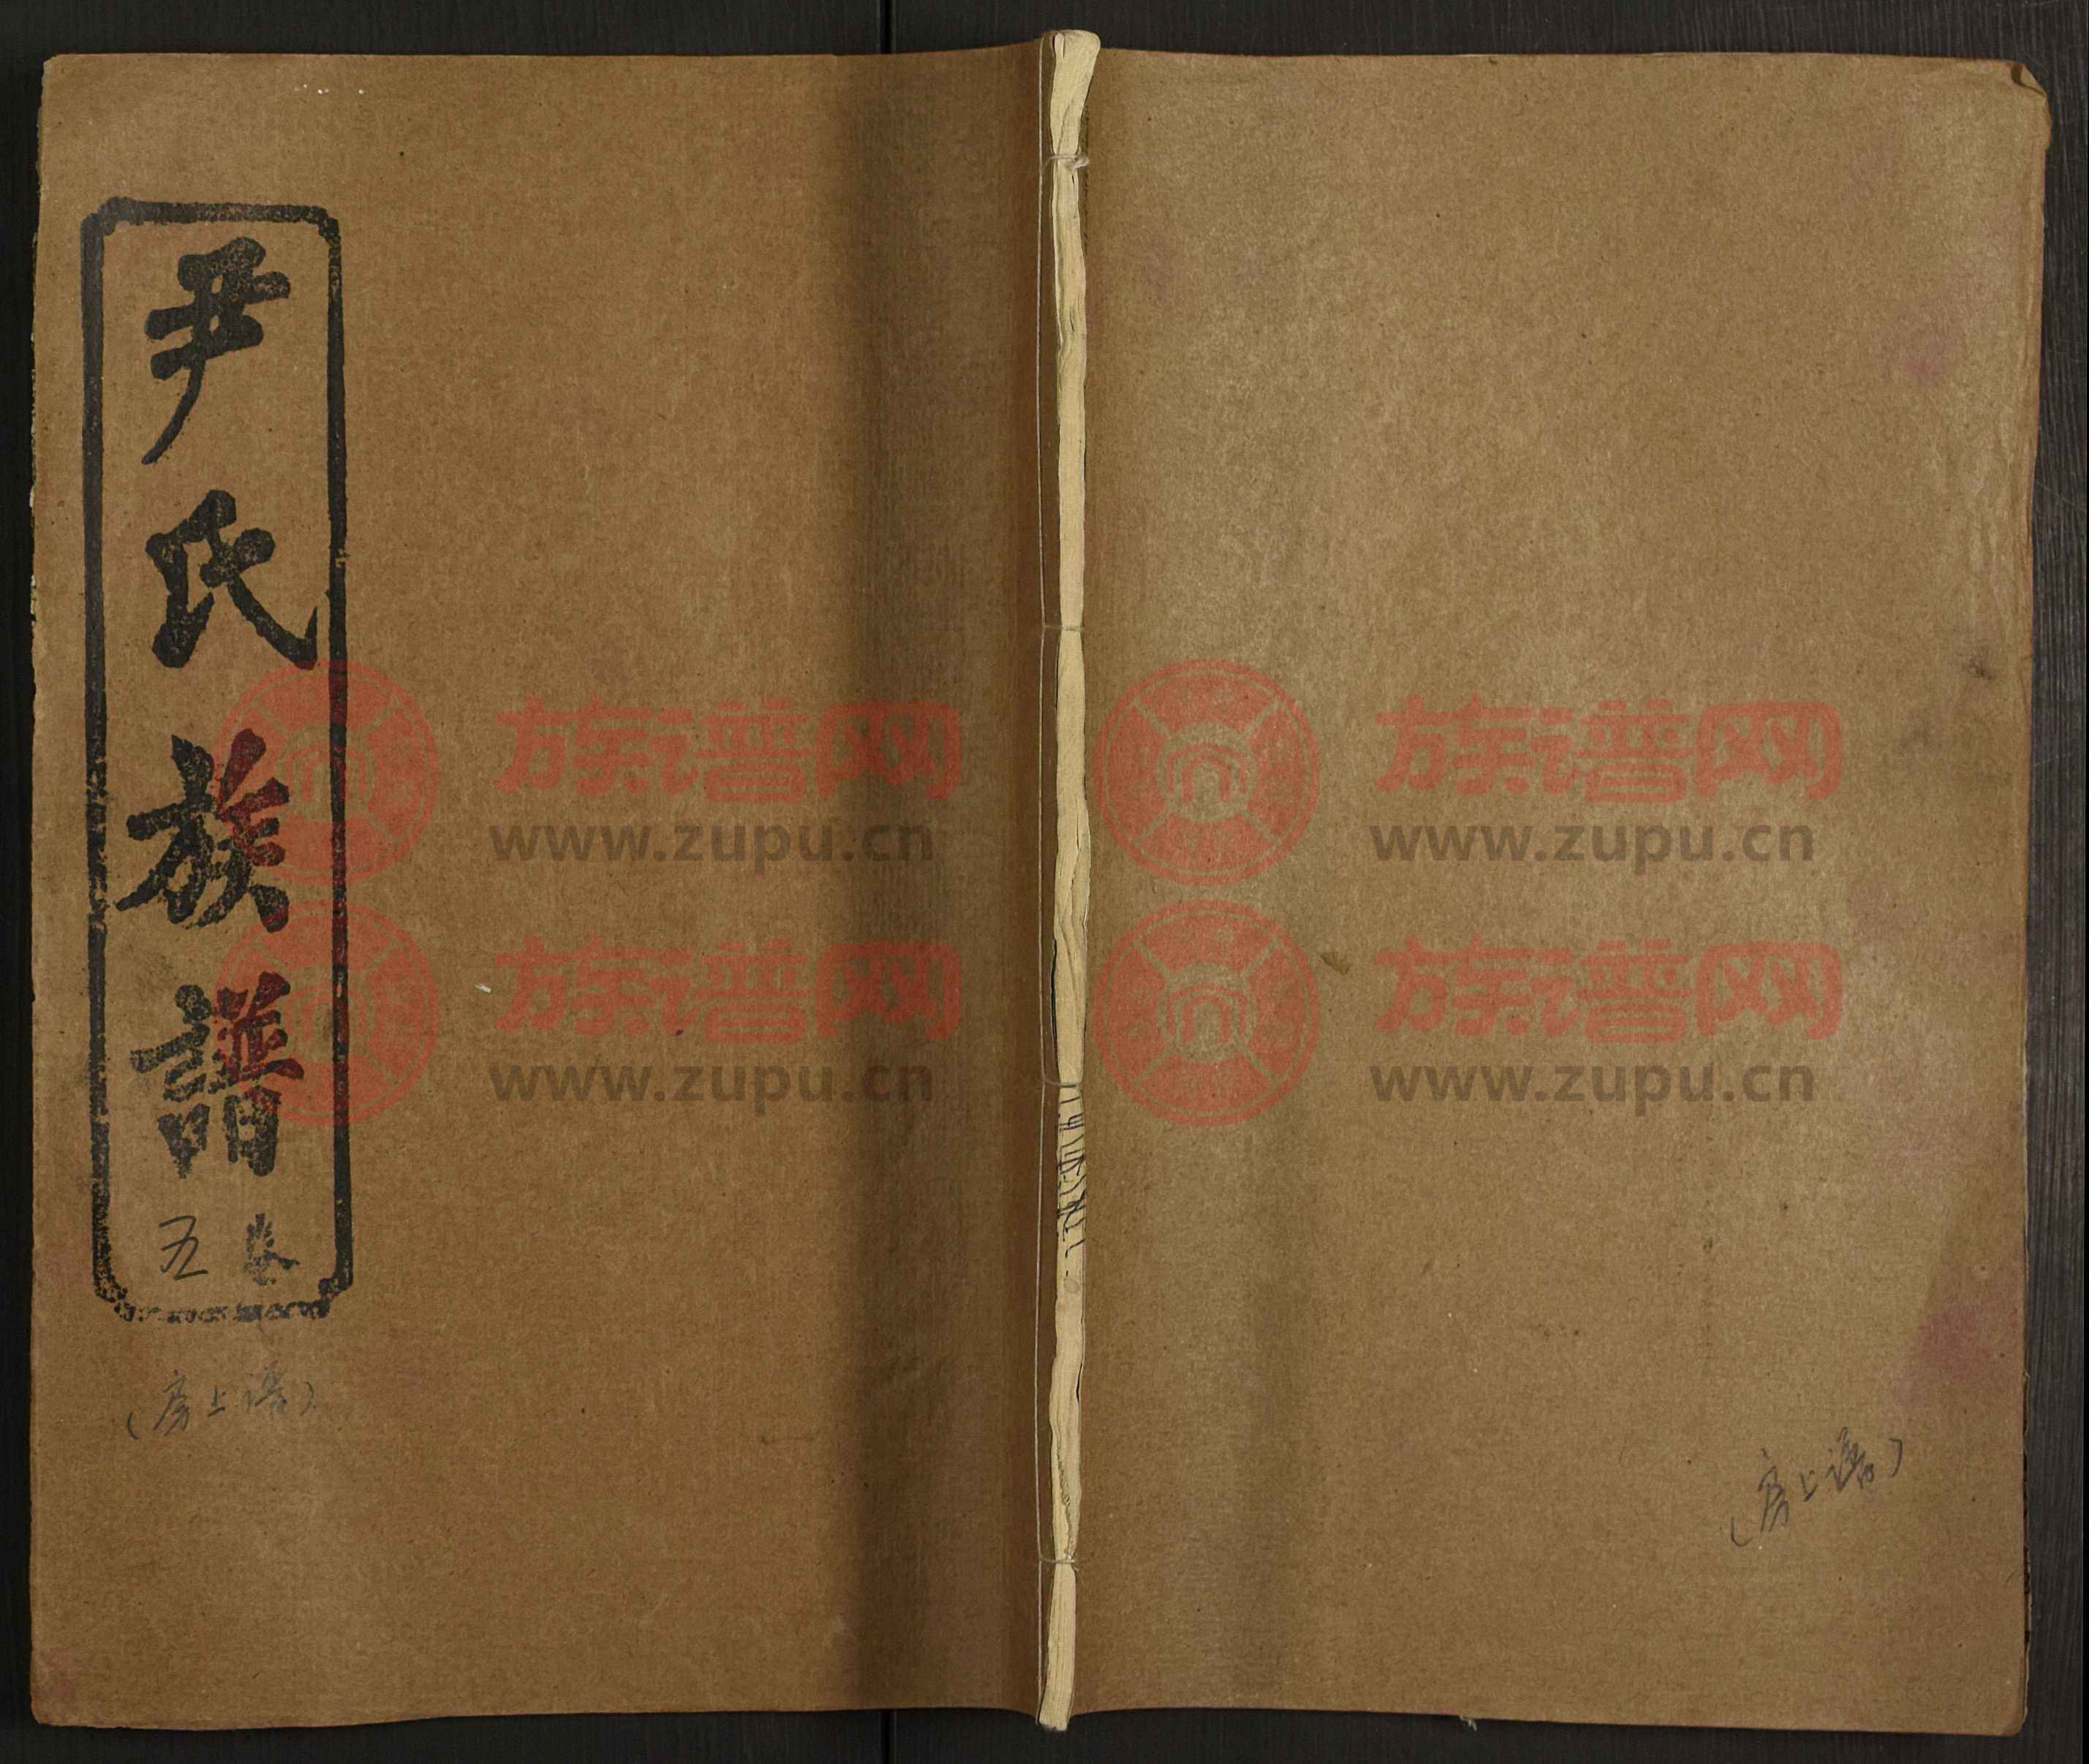 尹氏族譜
卷五
(房上谱)
(房上谱)
族谱网
www.zupu.cn
族谱网
www.zupu.cn
族谱网
www.zupu.cn
族谱网
www.zupu.cn